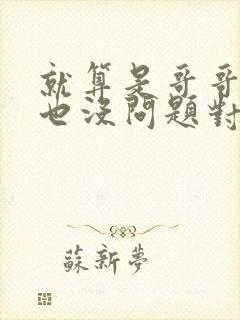 就算是哥哥
也沒問題對
蘇新夢